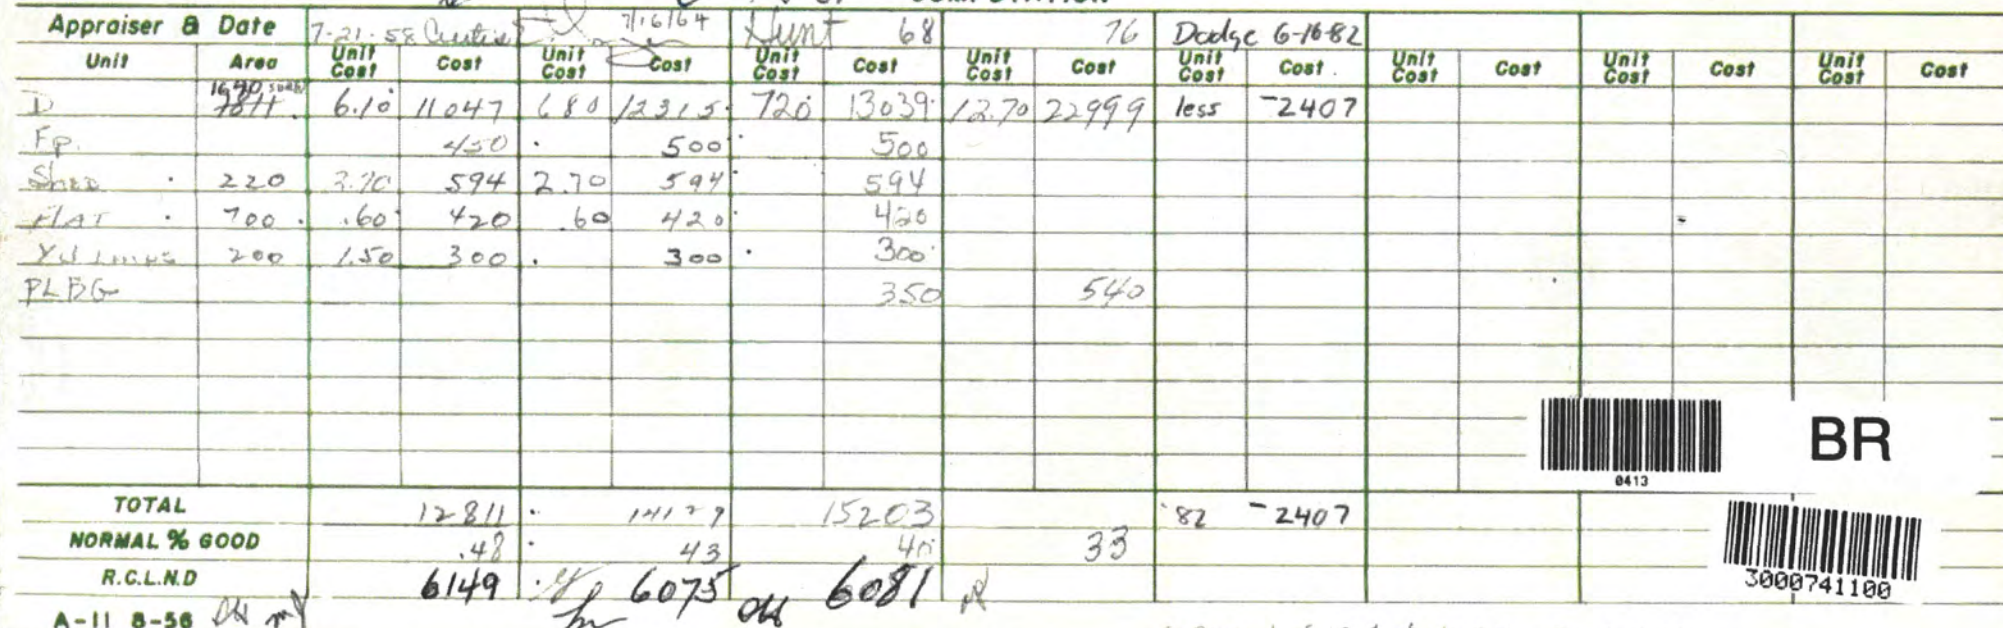 COMPUTATION
Appraiser & Date 7-21-58 Curtis 7/16/64 Hunt 68 76 Dodge 6-16-82
Unit Area Unit Cost Cost Unit Cost Cost Unit Cost Cost Unit Cost Cost Unit Cost Cost. Unit Cost Cost Unit Cost Cost Unit Cost Cost
1690
D 1811 6.10 11047 6 80 12315 720 13039 12.70 22999 less -2407
Fp. 450 500 500
Shed 220 2.70 594 2.70 594 594
FLAT 700 .60 420 .60 420 420
Yd Imps 200 1.50 300 300 300
PLBG 350 540
BR
0413
TOTAL 12811 14129 15203 '82 -2407
NORMAL % GOOD .48 43 40 33
R.C.L.N.D 6149 6075 6081
3000741100
A-11 8-56